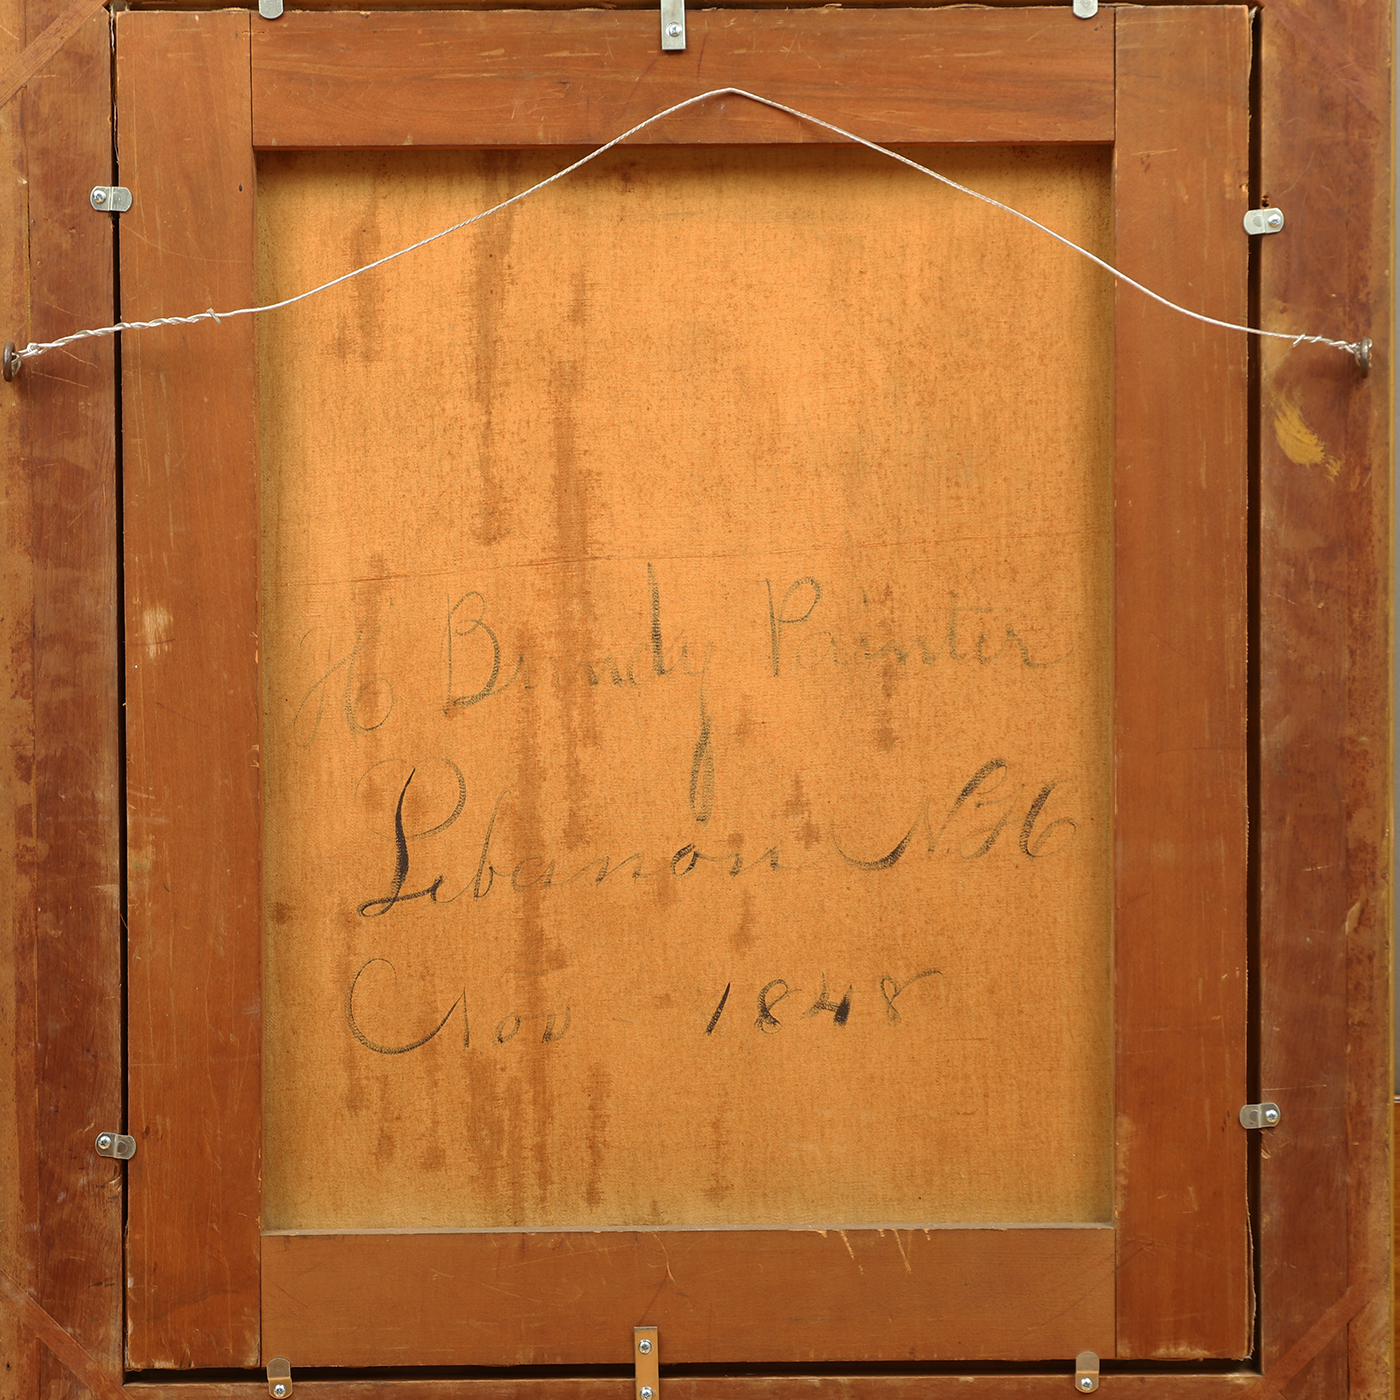 H Bundy Painter
Lebanon N.H.
Nov - 1848